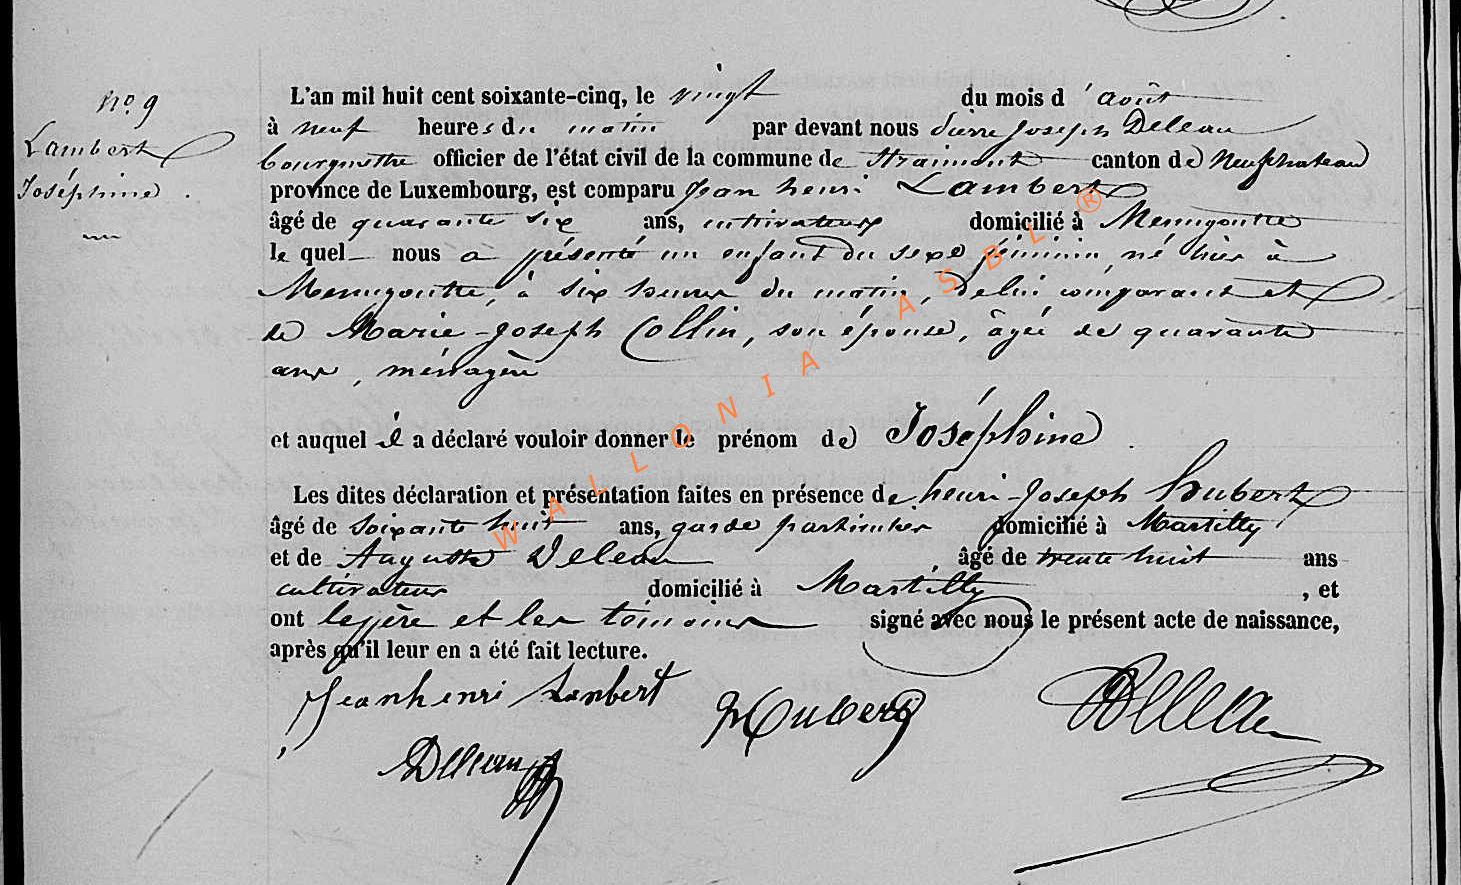 no. 9
Lambert
Joséphine.
L'an mil huit cent soixante-cinq, le vingt du mois d'août
à neuf heures du matin par devant nous Pierre Joseph Deleau
bourgmestre officier de l'état civil de la commune de Straimont canton de Neufchateau
province de Luxembourg, est comparu Jean henri Lambert
âgé de quarante six ans, cultivateur domicilié à Menugoutte
le quel nous a présenté un enfant du sexe féminin, né hier à
Menugoutte, à six heures du matin, de lui comparant et
de Marie-Joseph Collin, son épouse, âgée de quarante
ans, ménagère
et auquel il a déclaré vouloir donner le prénom de Joséphine.
Les dites déclaration et présentation faites en présence de henri-Joseph Hubert
âgé de soixante huit ans, garde particulier domicilié à Martilly
et de Auguste Deleau âgé de trente huit ans
cultivateur domicilié à Martilly, et
ont le père et les témoins signé avec nous le présent acte de naissance,
après qu'il leur en a été fait lecture.
Jean henri Lambert Hubert Deleau
Deleau
WALLONIA ASBL ®